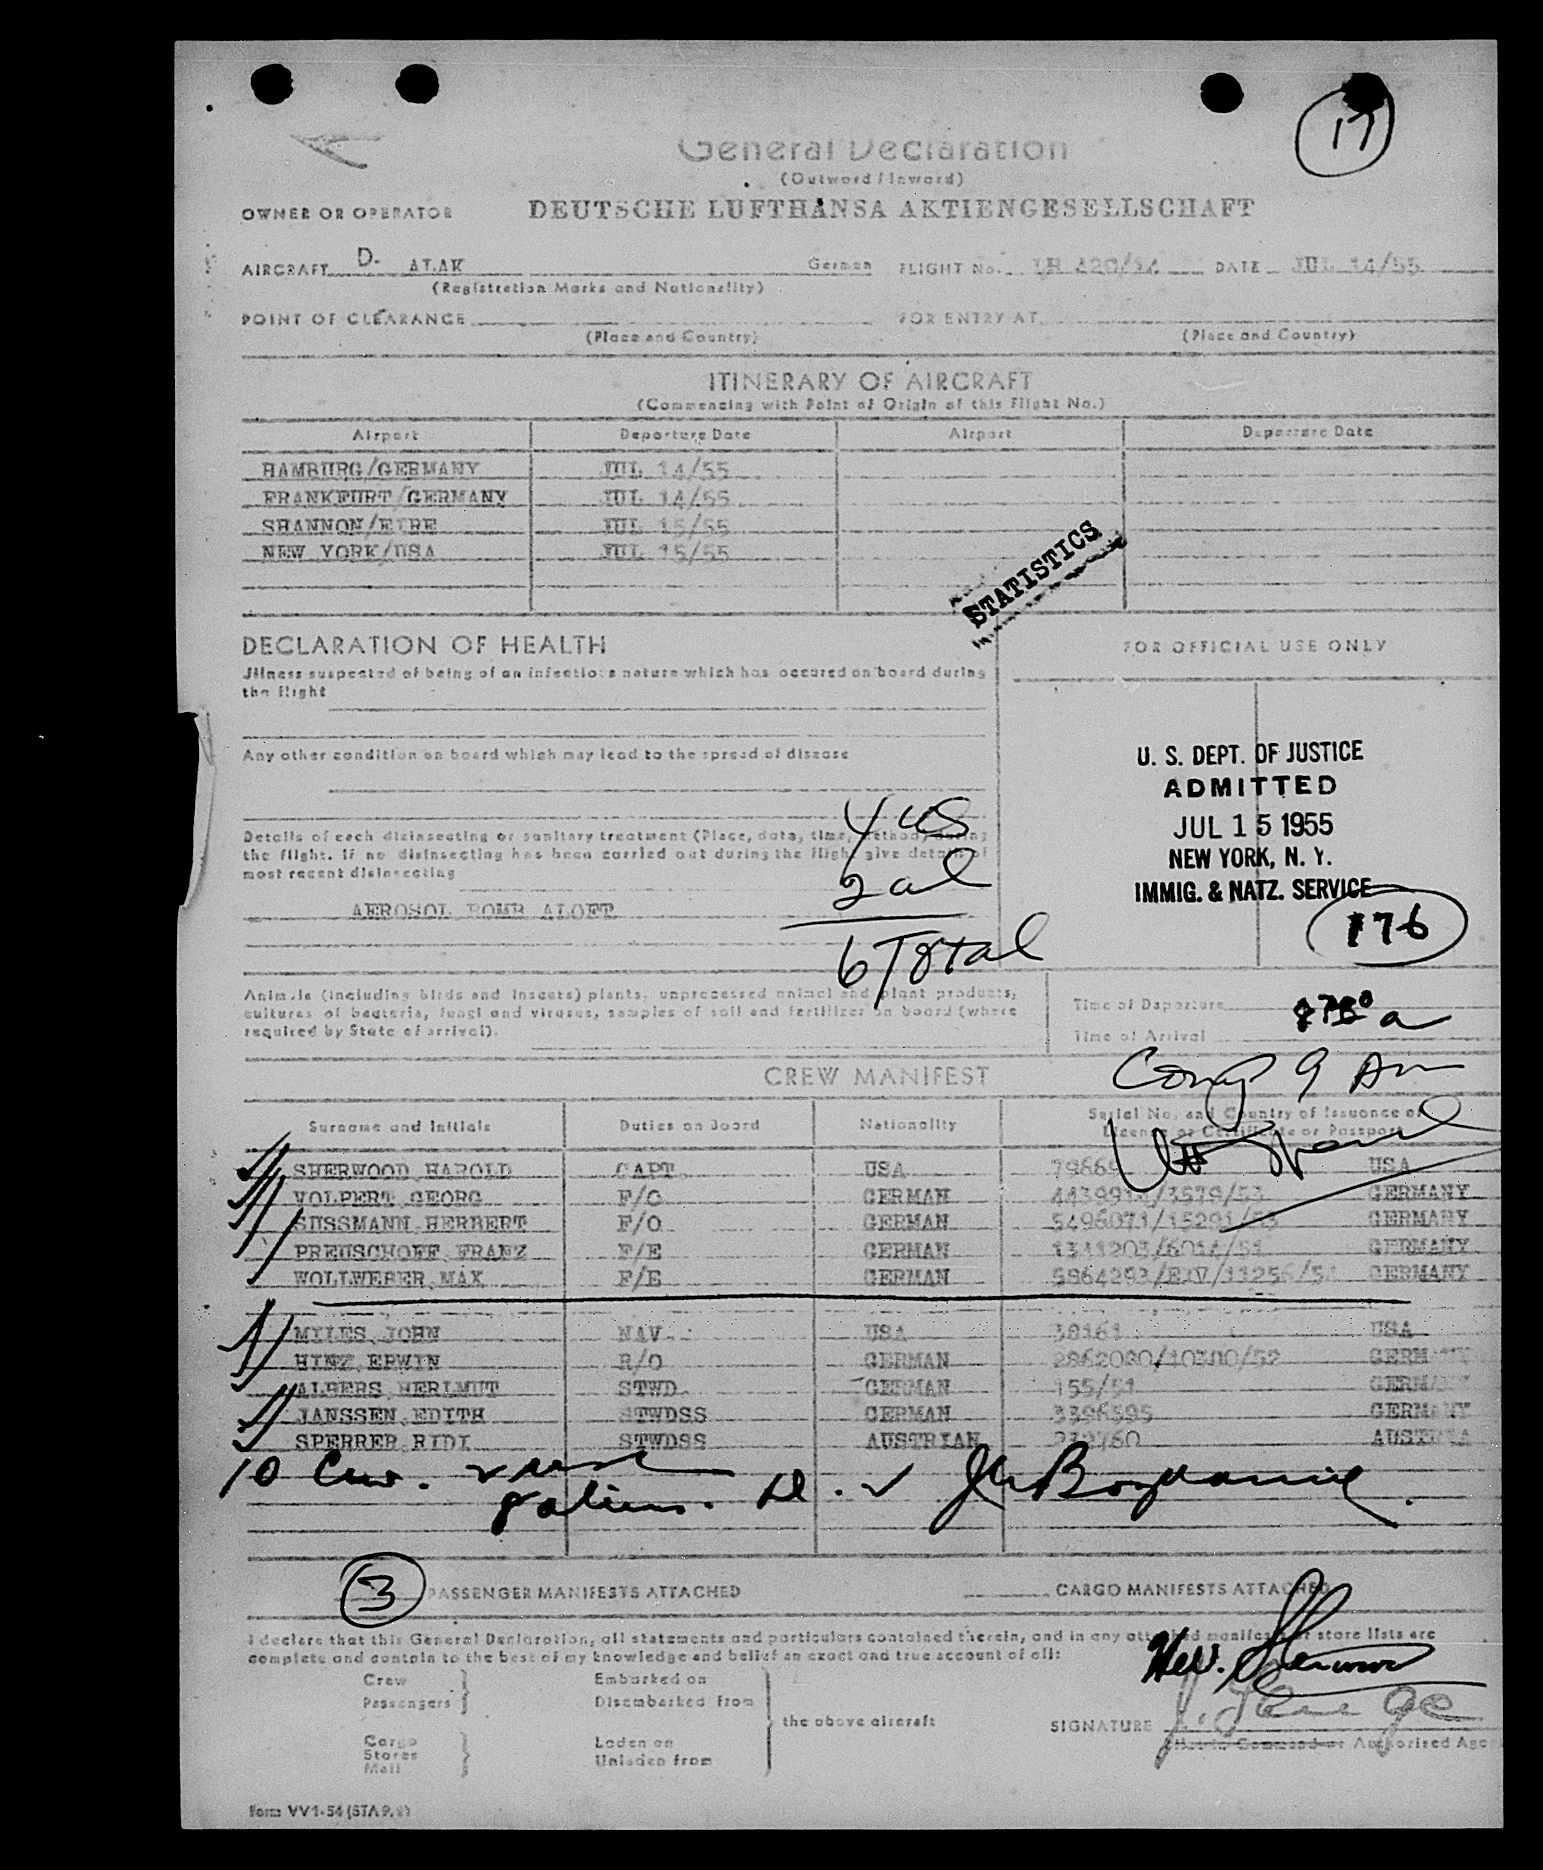 17
General Declaration
(Outward / Inward)
OWNER OR OPERATOR DEUTSCHE LUFTHANSA AKTIENGESELLSCHAFT
AIRCRAFT D- ALAK German FLIGHT No. LH 420/14 DATE JUL 14/55
(Registration Marks and Nationality)
POINT OF CLEARANCE FOR ENTRY AT
(Place and Country) (Place and Country)
ITINERARY OF AIRCRAFT
(Commencing with Point of Origin of this Flight No.)
Airport Departure Date Airport Departure Date
HAMBURG/GERMANY JUL 14/55
FRANKFURT/GERMANY JUL 14/55
SHANNON/EIRE JUL 15/55
NEW YORK/USA JUL 15/55
STATISTICS
DECLARATION OF HEALTH
FOR OFFICIAL USE ONLY
Illness suspected of being of an infectious nature which has occured on board during
the flight
Any other condition on board which may lead to the spread of disease
U. S. DEPT. OF JUSTICE
ADMITTED
JUL 15 1955
NEW YORK, N. Y.
IMMIG. & NATZ. SERVICE
176
4 US
2 al
6 Total
Details of each disinsecting or sanitary treatment (Place, data, time, method) during
the flight. If no disinsecting has been carried out during the flight give details of
most recent disinsecting
AEROSOL BOMB ALOFT
Animals (including birds and insects) plants, unprocessed animal and plant products,
cultures of bacteria, fungi and viruses, samples of soil and fertilizer on board (where
required by State of arrival).
Time of Departure
Time of Arrival
9 Am
CREW MANIFEST
Surname and Initials Duties on Board Nationality Serial No. and Country of Issuance of
License or Certificate or Passport
SHERWOOD, HAROLD CAPT. USA USA
VOLPERT, GEORG F/O GERMAN GERMANY
SUSSMANN, HERBERT F/O GERMAN GERMANY
PREUSCHOFF, FRANZ F/E GERMAN GERMANY
WOLLWEBER, MAX F/E GERMAN GERMANY
MILES, JOHN NAV. USA 38161 USA
HINZ, ERWIN R/O GERMAN GERMANY
ALBERS, HERLMUT STWD. GERMAN 155/51 GERMANY
JANSSEN, EDITH STWDSS GERMAN 3396595 GERMANY
SPERRER, RIDI STWDSS AUSTRIAN AUSTRIA
10 Crew.
8 aliens.
3 PASSENGER MANIFESTS ATTACHED CARGO MANIFESTS ATTACHED
I declare that this General Declaration, all statements and particulars contained therein, and in any attached manifests or store lists are
complete and contain to the best of my knowledge and belief an exact and true account of all:
Crew Embarked on
Passengers Disembarked from
the above aircraft
Cargo Laden on
Stores Unladen from
Mail
SIGNATURE
Authorized Agent
Form VV 1-54 (STA 9.2)